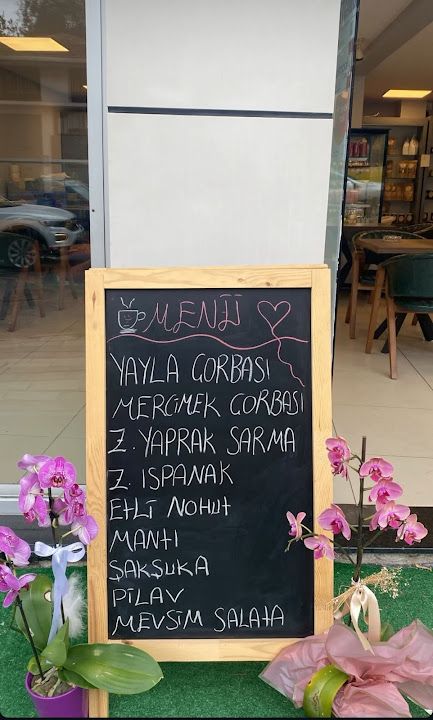 MENÜ
YAYLA ÇORBASI
MERCİMEK ÇORBASI
Z. YAPRAK SARMA
Z. ISPANAK
ETLİ NOHUT
MANTI
ŞAKŞUKA
PİLAV
MEVSİM SALATA